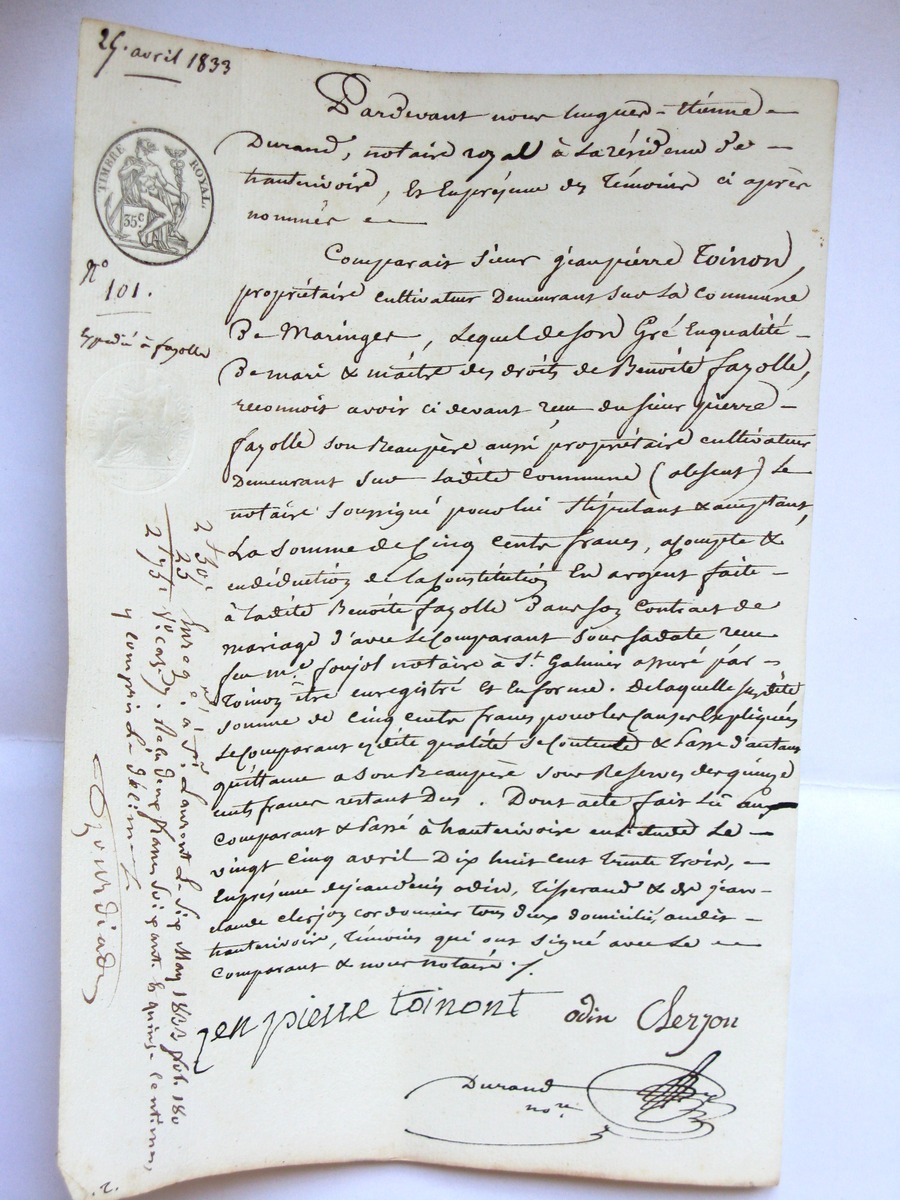 25. avril 1833
TIMBRE ROYAL.
35c
No
101.
Expédié à fayolle
Pardevant nous hugues-Etienne
Durand, notaire royal à la résidence de
hauterivoire, et en présence des témoins ci après
nommés
Comparait Sieur jean pierre Toinon,
propriétaire cultivateur Demeurant sur la Commune
De Maringes, Lequel de son Gré en qualité
De mari & maitre des droits de Benoîte fayolle,
reconnoit avoir ci devant reçu du sieur pierre
fayolle son Beaupère aussi propriétaire cultivateur
Demeurant sur ladite Commune (absent) Le
notaire soussigné pour lui stipulant & acceptant
La somme de Cinq Cents francs, acompte &
en déduction de la Constitution En argent faite
à ladite Benoîte fayolle Dans son Contract de
mariage d'avec le Comparant sous sa date reçu
feu me. foujol notaire à St. Galmier assuré par
Toinon être enregistré Et en forme. De laquelle susdite
somme de Cinq Cents francs pour les Causes Expliquées
Le Comparant en dite qualité se Contente & Passe d'autant
quittance a son Beaupère sous Reserves des quinze
cents francs restant Dus. Dont acte fait Lu au
Comparant & Passé à hauterivoire en Etude Le
vingt cinq avril Dix huit Cent trente Trois,
En présence de jean denis odin, Tisserand & de jean
claude clerjon cordonnier tous deux domiciliés audit
hauterivoire, Témoins qui ont signé avec Le
Comparant & nous notaire ./.
jen pierre toinont odin Clerjon
Durand
nore
2f 50c
25
2f 75c
Enregé. à St. Laurent Le Six May 1833 fol. 180
Vo Case 7. Reçu deux francs soixante & quinze centimes,
y compris Le décime
.2.